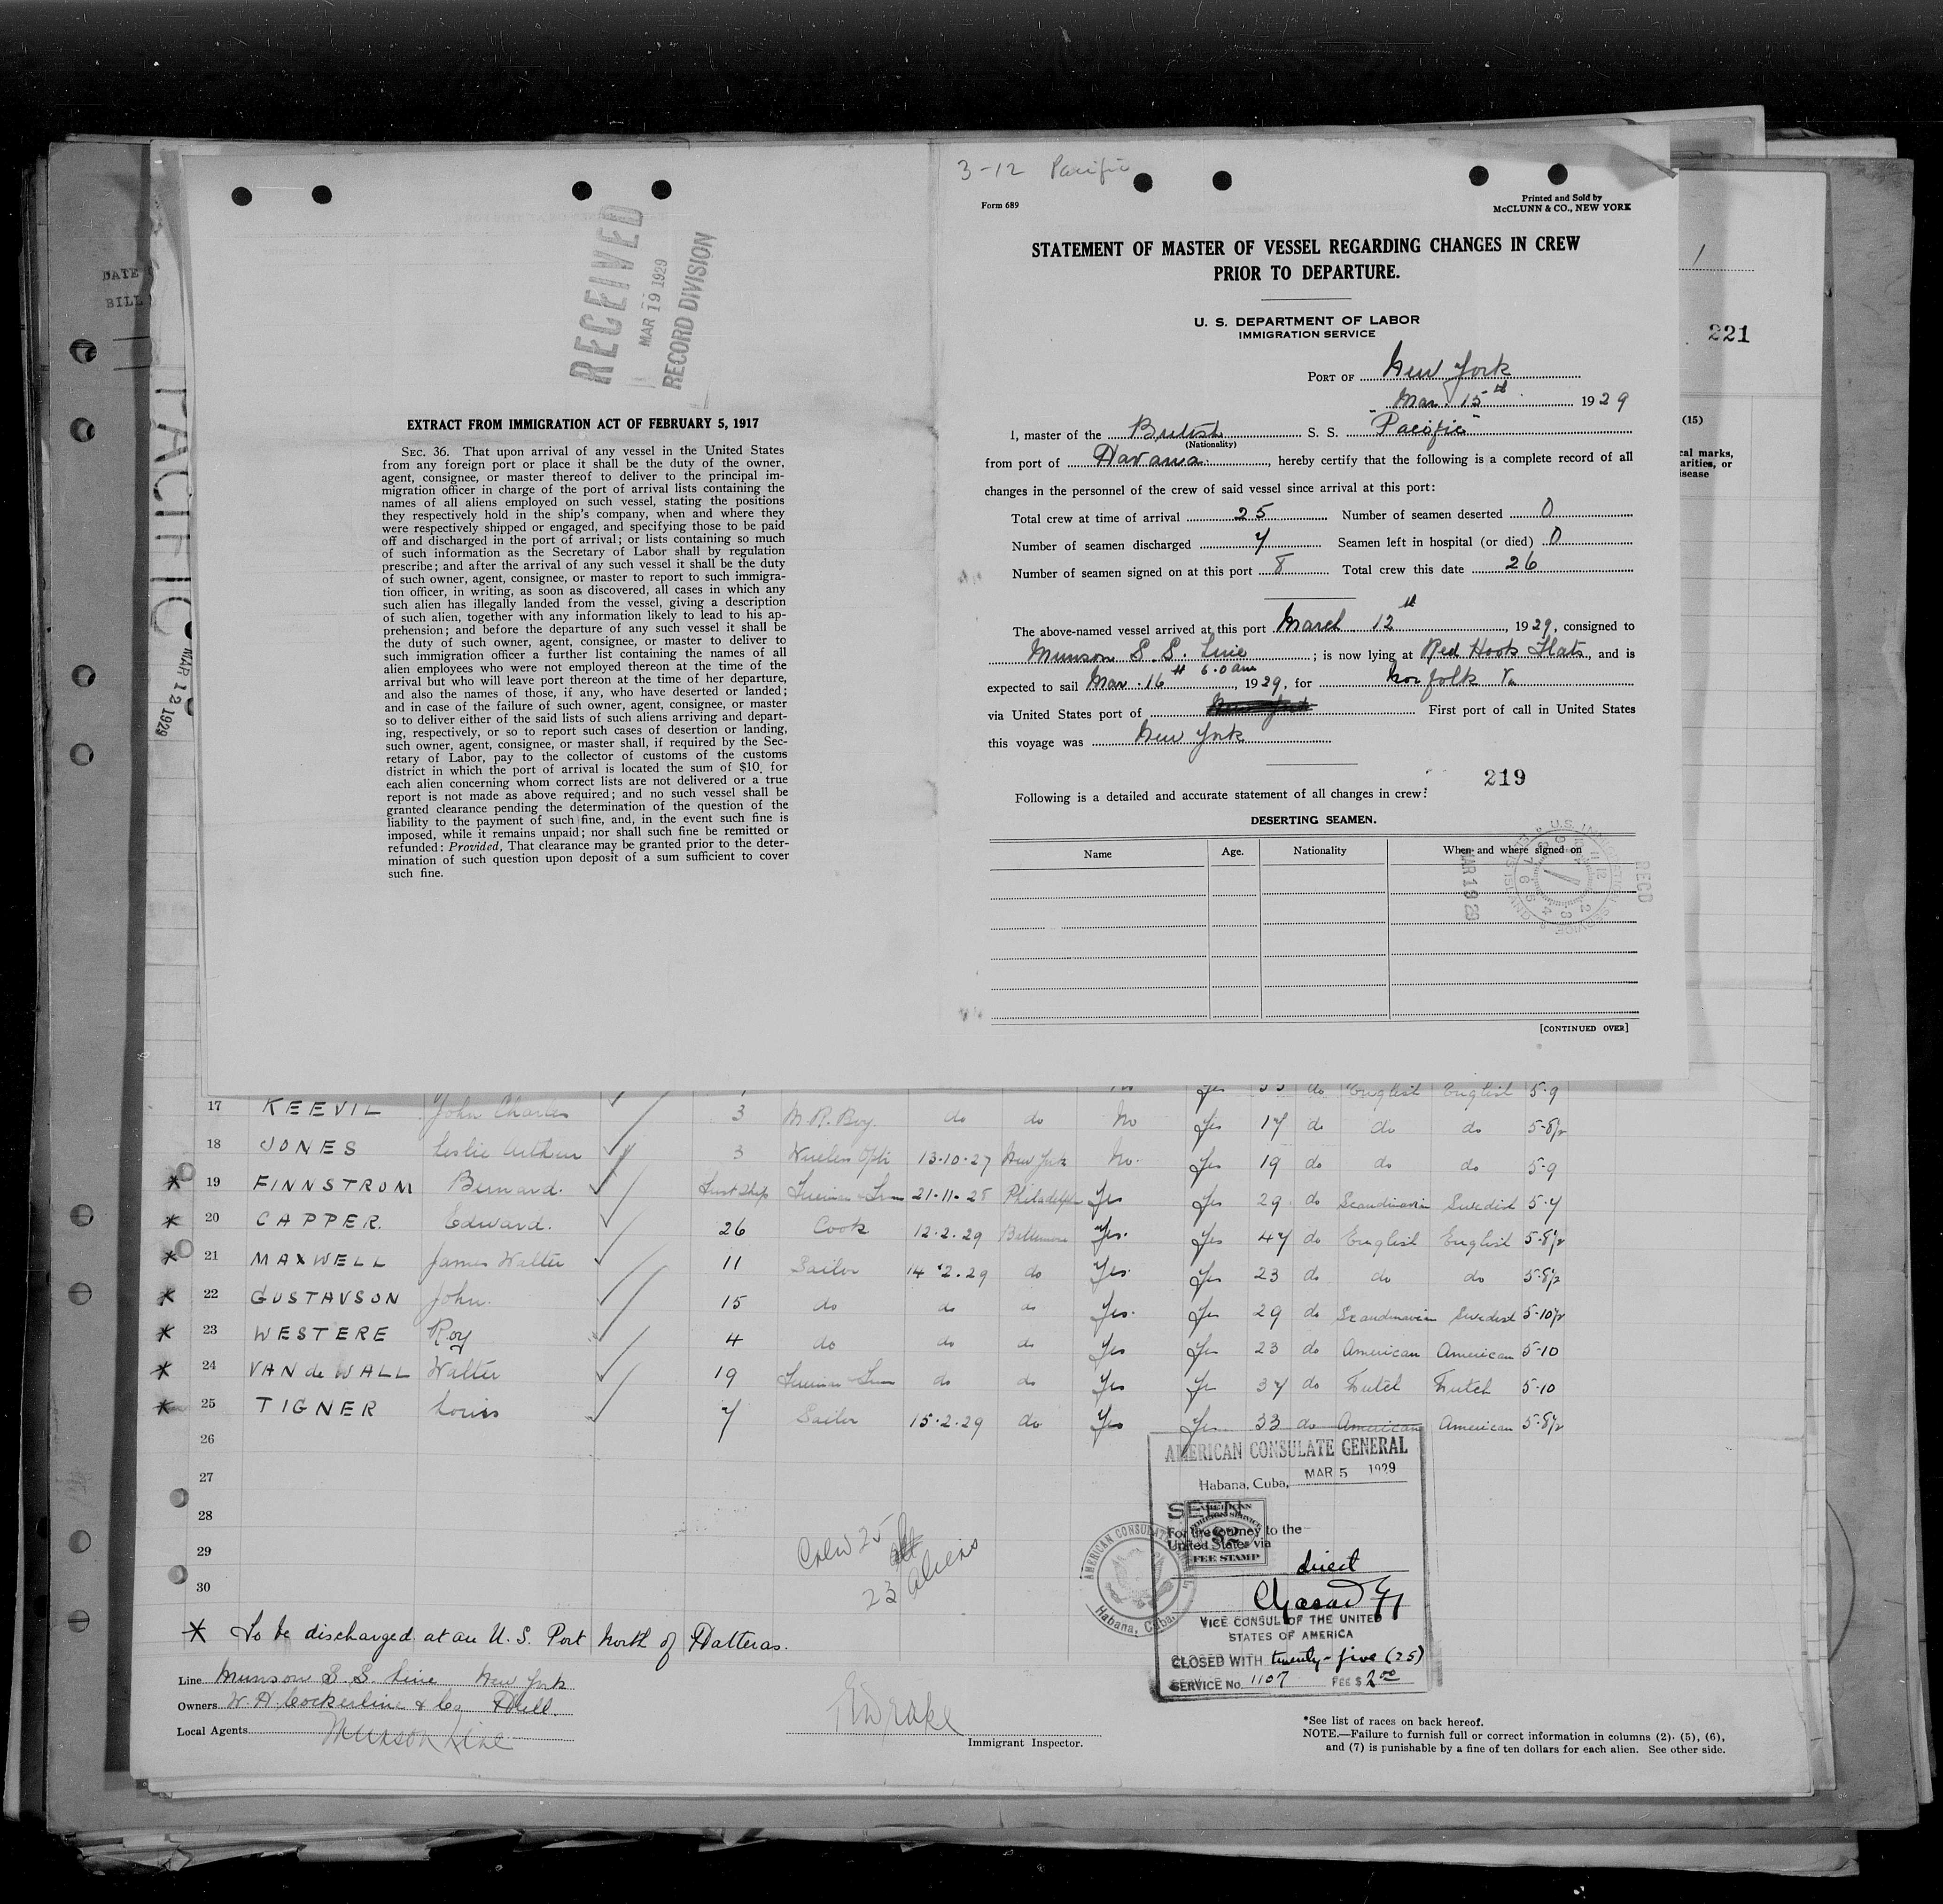 3-12 Pacific
Form 689
Printed and Sold by
McCLUNN & CO., NEW YORK
STATEMENT OF MASTER OF VESSEL REGARDING CHANGES IN CREW
PRIOR TO DEPARTURE.
U. S. DEPARTMENT OF LABOR
IMMIGRATION SERVICE
PORT OF New York
Mar. 15th 1929
I, master of the British S. S. "Pacific"
(Nationality)
from port of Havana, hereby certify that the following is a complete record of all
changes in the personnel of the crew of said vessel since arrival at this port:
Total crew at time of arrival 25 Number of seamen deserted 0
Number of seamen discharged 7 Seamen left in hospital (or died) 0
Number of seamen signed on at this port 8 Total crew this date 26
The above-named vessel arrived at this port March 12th, 1929, consigned to
Munson S. S. Line; is now lying at Red Hook Flats, and is
expected to sail Mar. 16th 6.0 am, 1929, for Norfolk Va
via United States port of First port of call in United States
this voyage was New York
219
Following is a detailed and accurate statement of all changes in crew:
DESERTING SEAMEN.
Name Age. Nationality When and where signed on
[CONTINUED OVER]
RECEIVED
MAR 19 1929
RECORD DIVISION
EXTRACT FROM IMMIGRATION ACT OF FEBRUARY 5, 1917
SEC. 36. That upon arrival of any vessel in the United States
from any foreign port or place it shall be the duty of the owner,
agent, consignee, or master thereof to deliver to the principal im-
migration officer in charge of the port of arrival lists containing the
names of all aliens employed on such vessel, stating the positions
they respectively hold in the ship's company, when and where they
were respectively shipped or engaged, and specifying those to be paid
off and discharged in the port of arrival; or lists containing so much
of such information as the Secretary of Labor shall by regulation
prescribe; and after the arrival of any such vessel it shall be the duty
of such owner, agent, consignee, or master to report to such immigra-
tion officer, in writing, as soon as discovered, all cases in which any
such alien has illegally landed from the vessel, giving a description
of such alien, together with any information likely to lead to his ap-
prehension; and before the departure of any such vessel it shall be
the duty of such owner, agent, consignee, or master to deliver to
such immigration officer a further list containing the names of all
alien employees who were not employed thereon at the time of the
arrival but who will leave port thereon at the time of her departure,
and also the names of those, if any, who have deserted or landed;
and in case of the failure of such owner, agent, consignee, or master
so to deliver either of the said lists of such aliens arriving and depart-
ing, respectively, or so to report such cases of desertion or landing,
such owner, agent, consignee, or master shall, if required by the Sec-
retary of Labor, pay to the collector of customs of the customs
district in which the port of arrival is located the sum of $10 for
each alien concerning whom correct lists are not delivered or a true
report is not made as above required; and no such vessel shall be
granted clearance pending the determination of the question of the
liability to the payment of such fine, and, in the event such fine is
imposed, while it remains unpaid; nor shall such fine be remitted or
refunded: Provided, That clearance may be granted prior to the deter-
mination of such question upon deposit of a sum sufficient to cover
such fine.
DATE
BILL
PACIFIC
MAR 12 1929
1
221
(15)
cal marks,
arities, or
isease
RECD
No Yes 33 do English English 5-9
17 KEEVIL John Charles 3 M.R. Boy. do do No Yes 17 do do do 5-8½
18 JONES Leslie Arthur 3 Wireless Optr 13-10-27 New York No. Yes 19 do do do 5-9
* 19 FINNSTROM Bernard. First Ship 21-11-28 Philadelphia Yes Yes 29 do Scandinavian Swedish 5-7
* 20 CAPPER. Edward. 26 Cook 12.2.29 Baltimore Yes. Yes 47 do English English 5-8½
* 21 MAXWELL James Walter 11 Sailor 14.2.29 do Yes. Yes 23 do do do 5-8½
* 22 GUSTAVSON John. 15 do do do Yes. Yes 29 do Scandinavian Swedish 5-10½
* 23 WESTERE Roy 4 do do do Yes Yes 23 do American American 5-10
* 24 VAN de WALL Walter 19 do do Yes Yes 37 do Dutch Dutch 5-10
* 25 TIGNER Louis 7 Sailor 15.2.29 do Yes Yes 33 do American American 5-8½
26
27
28
29
30
Crew 25
23 aliens
AMERICAN CONSULATE GENERAL
Habana, Cuba, MAR 5 1929
SEEN
For the journey to the
United States via
FEE STAMP
direct
VICE CONSUL OF THE UNITED
STATES OF AMERICA
CLOSED WITH twenty-five (25)
SERVICE No. 1107 FEE $ 2.00
AMERICAN CONSULATE GENERAL
Habana, Cuba.
* To be discharged at an U. S. Port North of Hatteras.
Line Munson S. S. Line New York
Owners W. H. Cockerline & Co Hull.
Local Agents Munson Line
Immigrant Inspector.
*See list of races on back hereof.
NOTE.—Failure to furnish full or correct information in columns (2), (5), (6),
and (7) is punishable by a fine of ten dollars for each alien. See other side.